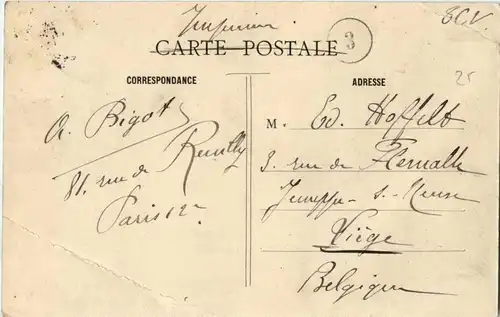 Imprimé
TCV
CARTE POSTALE
3
CORRESPONDANCE
ADRESSE
25
A. Bigot
81, rue de Reuilly
Paris 12e
M. Ed. Hoffelt
3, rue de Flemalle
Jemeppe-s.-Meuse
Liège
Belgique